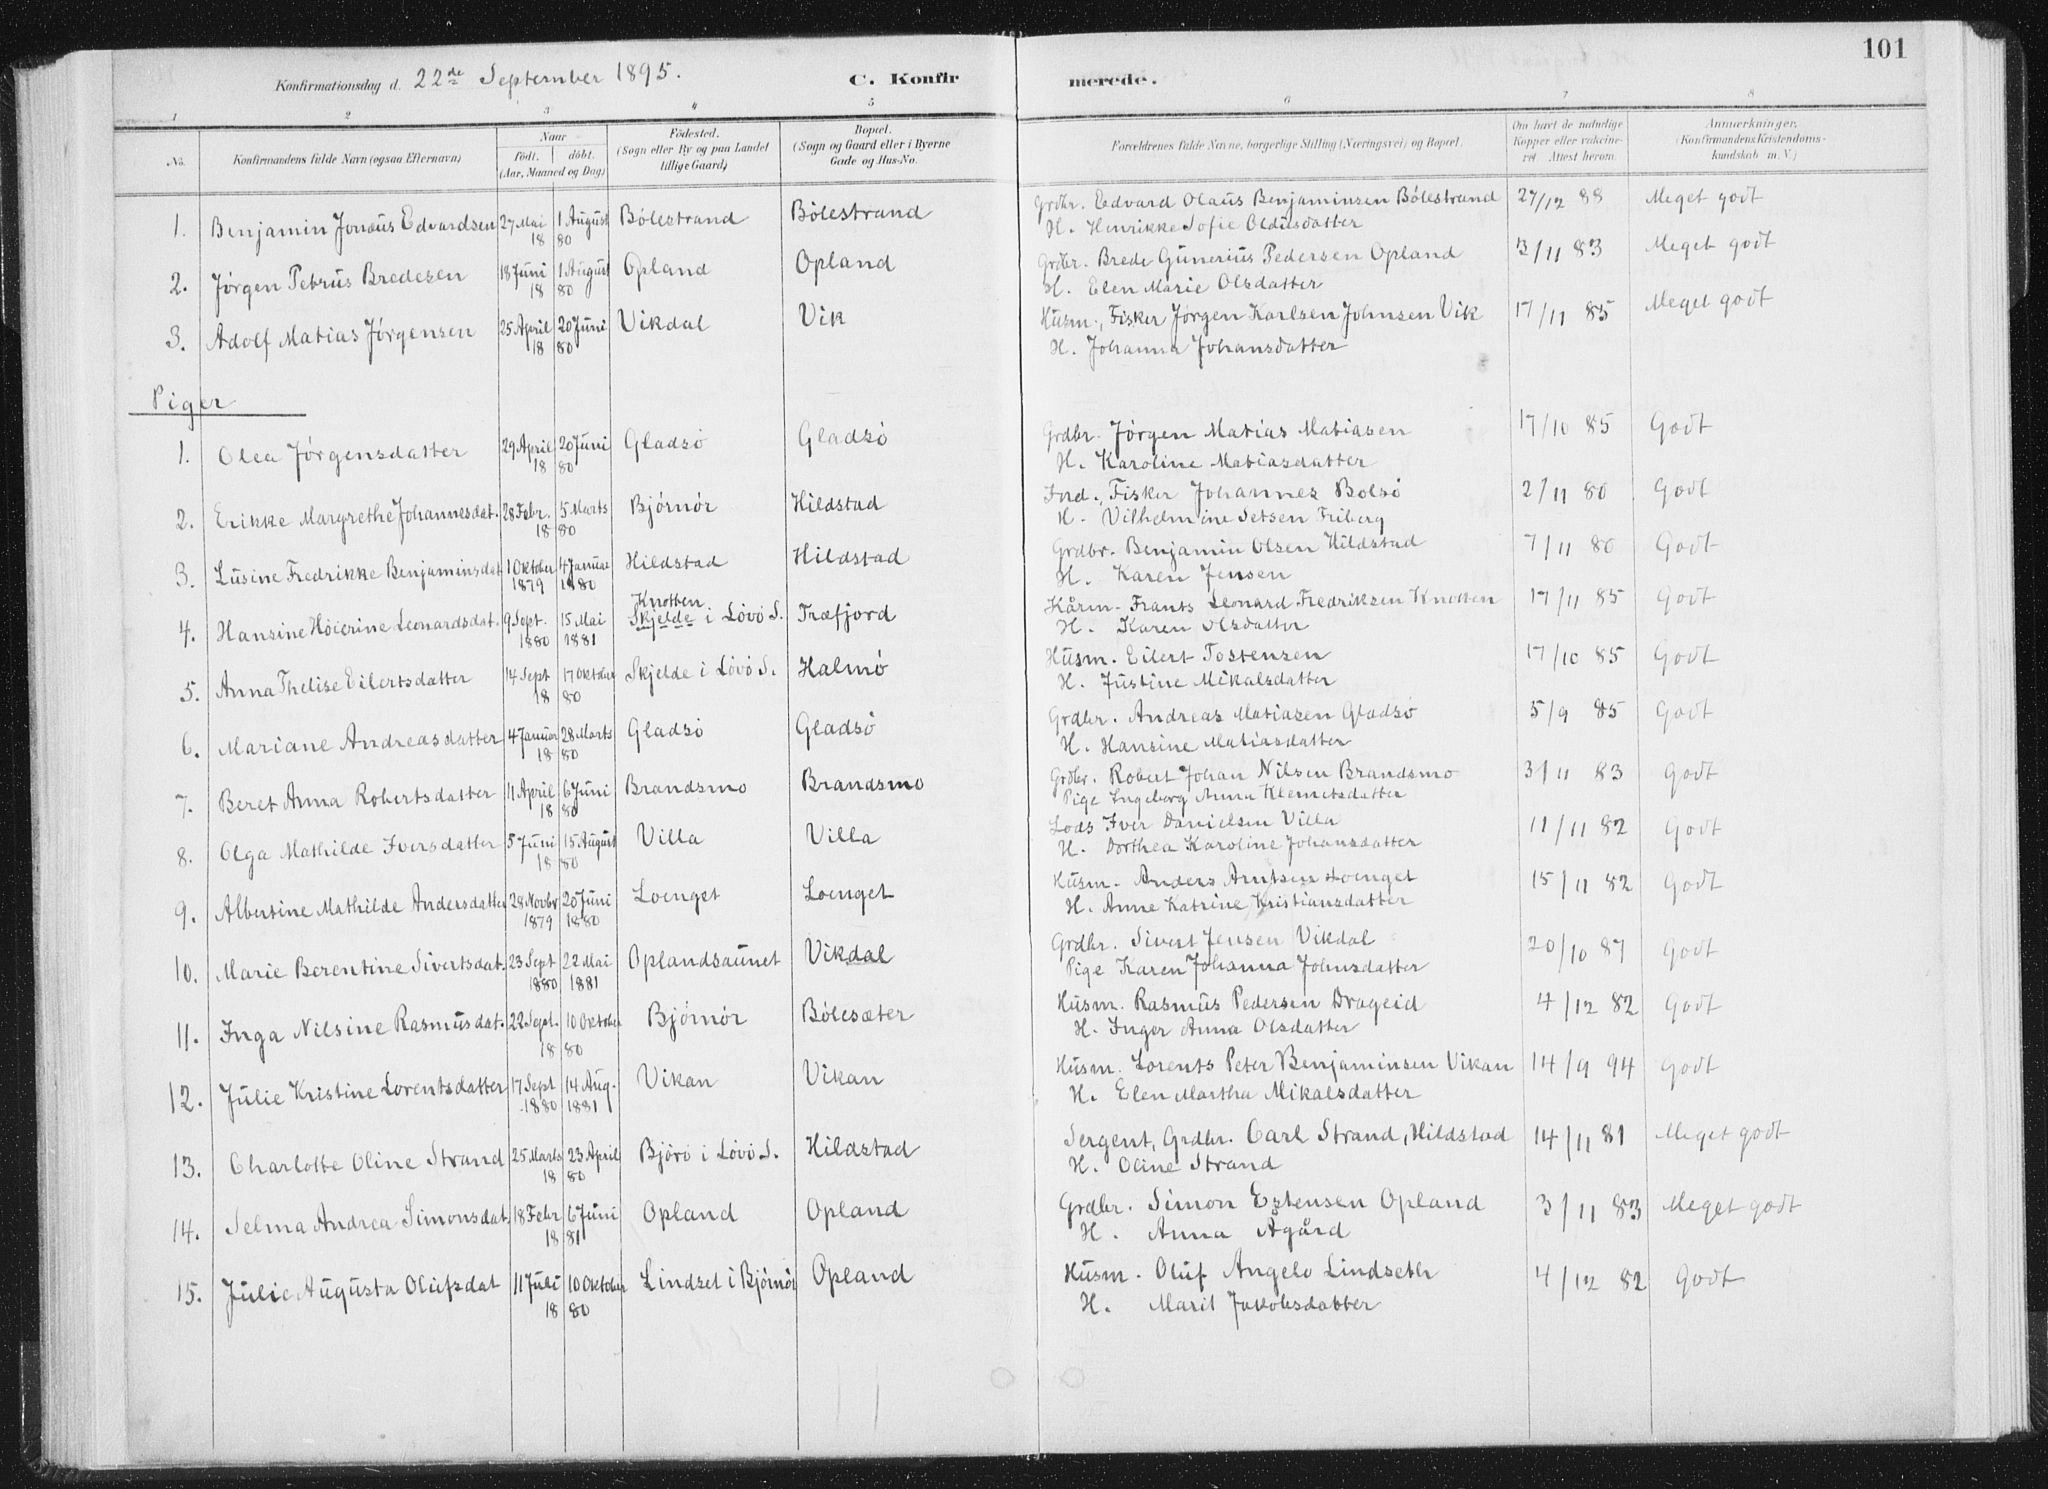 101
Konfirmationsdag d. 22de September 1895. C. Konfirmerede.
1 2 3 4 5 6 7 8
No. Konfirmandens fulde Navn (ogsaa Efternavn) Naar født. døbt. (Aar, Maaned og Dag) Fødested. (Sogn eller By og paa Landet tillige Gaard) Bopæl. (Sogn og Gaard eller i Byerne Gade og Hus-No. Forældrenes fulde Navne, borgerlige Stilling (Næringsvei) og Bopæl. Om havt de naturlige Kopper eller vakcineret. Attest herom. Anmærkninger. (Konfirmandens Kristendomskundskab m. V.)
1. Benjamin Jonæus Edvardsen 27 Mai 1 August Bölestrand Bölestrand Grdbr. Edvard Olaus Benjaminsen Bölestrand 27/12 88 Meget godt
18 80 H. Henrikke Sofie Oldusdatter
2. Jørgen Petrus Bredesen 18 Juni 1 August Opland Opland Grdbr. Brede Gunerius Pedersen Opland 3/11 83 Meget godt
18 80 H. Elen Marie Olsdatter
3. Adolf Matias Jörgensen 25 April 20 Juni Vikdal Vik Husm., Fisker Jørgen Karlsen Johnsen Vik 17/11 85 Meget godt
18 80 H. Johanna Johansdatter
Piger
1. Olea Jörgensdatter 29 April 20 Juni Gladsö Gladsö Grdbr. Jörgen Matias Matiasen 17/10 85 Godt
18 80 H. Karoline Matiasdatter
2. Erikke Margrethe Johannesdat. 28 Febr. 5 Marts Bjórnór Hildstad Ford., Fisker Johannes Bolsö 2/11 80 Godt
18 80 H. Vilhelmine Friberg
3. Lusine Fredrikke Benjaminsdat 1 Oktober 4 Januar Hildstad Hildstad Grdbr. Benjamin Olsen Hildstad 7/11 80 Godt
1879 1880 H. Karen Jensen
4. Hansine Höierine Leonardsdat. 9 Sept. 15 Mai Knotten Skjelde i Lövö S. Træfjord Kårm. Frants Leonard Fredriksen Knotten 17/11 85 Godt
1880 1881 H. Karen Olsdatter
5. Anna Thelise Eilertsdatter 14 Sept 17 Oktober Skjelde i Lövö S. Halmö Husm. Eilert Tostensen 17/10 85 Godt
18 80 H. Justine Mikalsdatter
6. Mariane Andreasdatter 4 Januar 28 Marts Gladsö Gladsö Grdbr. Andreas Matiasen Gladsö 5/9 85 Godt
18 80 H. Hansine Matiasdatter
7. Beret Anna Robertsdatter 11 April 6 Juni Brandsmo Brandsmo Grdbr. Robert Johan Nilsen Brandsmo 3/11 83 Godt
18 80 Pige Ingeborg Anna Klemetsdatter
8. Olga Mathilde Iversdatter 5 Juni 15 August Villa Villa Lods Iver Danielsen Villa 11/11 82 Godt
18 80 H. Dorthea Karoline Johansdatter
9. Albertine Mathilde Andersdatter 28 Novbr 20 Juni Loenget Loenget Husm. Anders Arntsen Loenget 15/11 82 Godt
1879 1880 H. Anne Katrine Kristiansdatter
10. Marie Berentine Sivertsdat. 23 Sept 22 Mai Oplandsaunet Vikdal Grdbr. Sivert Jensen Vikdal 20/10 87 Godt
1880 1881 Pige Karen Johanna Johnsdatter
11. Inga Nilsine Rasmusdat. 22 Sept. 10 Oktober Bjórnór Bölesæter Husm. Rasmus Pedersen Drageid 4/12 82 Godt
18 80 H. Inger Anna Olsdatter
12. Julie Kristine Lorentsdatter 17 Sept 14 Aug. Vikan Vikan Husm. Lorents Peter Benjaminsen Vikan 14/9 94 Godt
1880 1881 H. Elen Martha Mikalsdatter
13. Charlotte Oline Strand 25 Marts 23 April Bjórö i Lövö S. Hildstad Sergent, Grdbr. Carl Strand, Hildstad 14/11 81 Meget godt
18 80 H. Oline Strand
14. Selma Andrea Simonsdat. 18 Febr 6 Juni Opland Opland Grdbr. Simon Estensen Opland 3/11 83 Meget godt
18 81 H. Anna Ågård
15. Julie Augusta Olufsdat 11 Juli 10 Oktober Lindset i Bjórnór Opland Husm. Oluf Angelo Lindseth 4/12 82 Godt
18 80 H. Marit Jakobsdatter